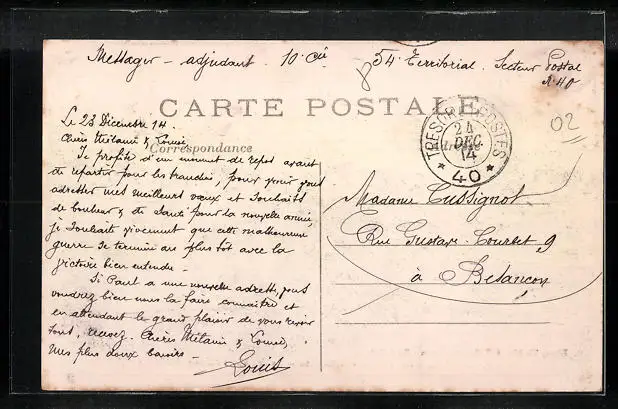 Messager - adjudant. 10e Cie 54e Territorial. Secteur Postal
N. 40
CARTE POSTALE
Correspondance
TRESOR ET POSTES
24
DEC
14
* 40 *
02
Le 23 Décembre 14.
Chères Mélanie &
Je profite d'un moment de repos avant
de repartir pour les tranchées, pour venir vous
adresser mes meilleurs vœux et souhaits
de bonheur & de santé pour la nouvelle année,
je souhait vivement que cette malheureuse
guerre se termine au plus tôt avec la
victoire bien entendu -
Si Paul a une nouvelle adresse, vous
voudrez bien nous la faire connaître et
en attendant le grand plaisir de vous revoir
tous, recevez Chères Mélanie &
mes plus doux baisers -
Louis
Madame Cussignot
Rue Gustave Courbet 9
à Besançon